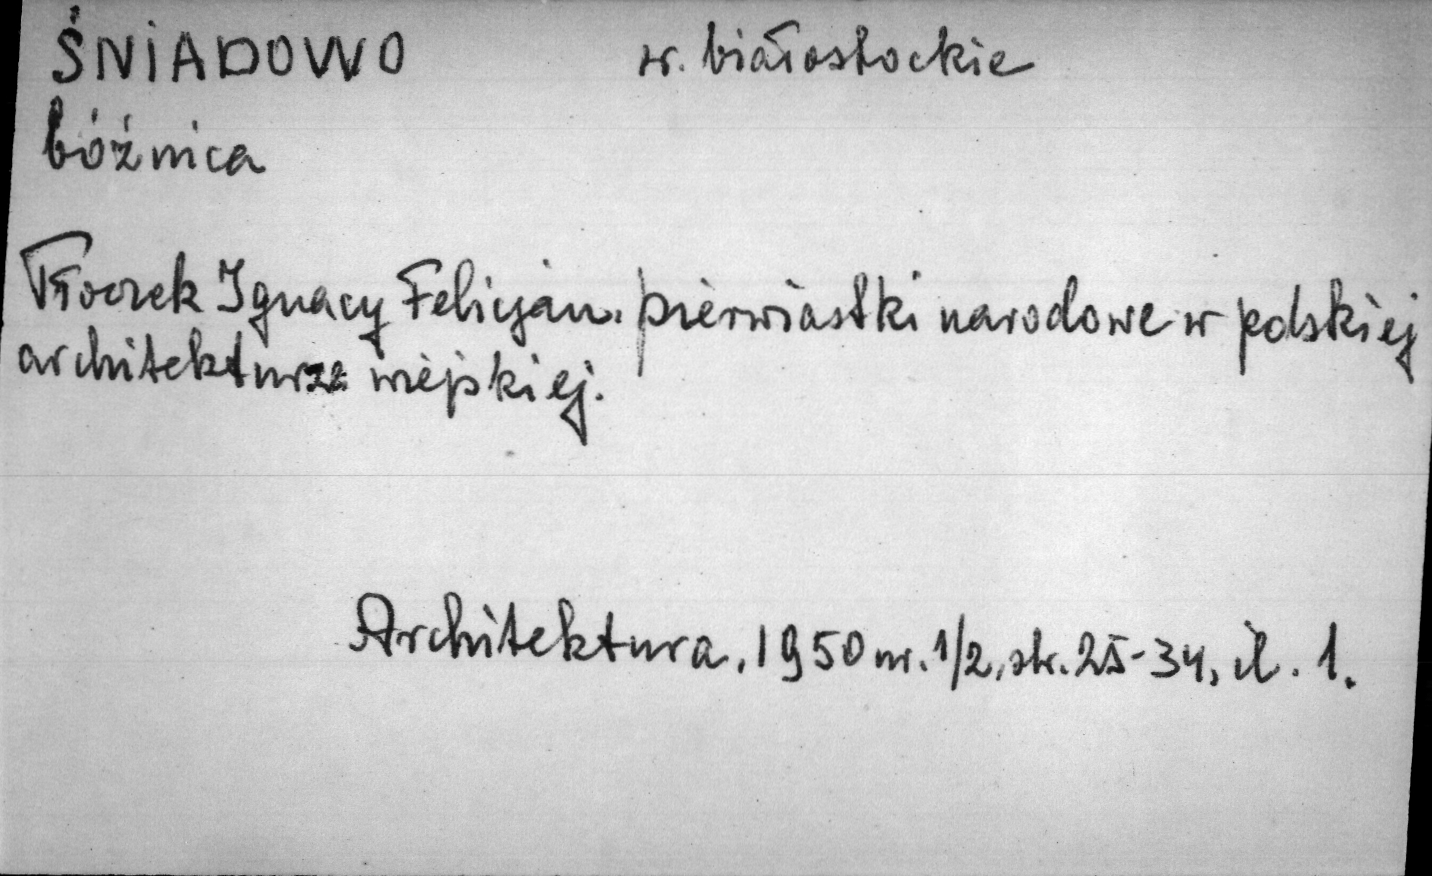 ŚNIADOWO w. białostockie
bóźnica
Tłoczek Ignacy Felicjan. pierwiastki narodowe w polskiej
architekturze wiejskiej.
Architektura, 1950 nr. 1/2, str. 25-34, il. 1.